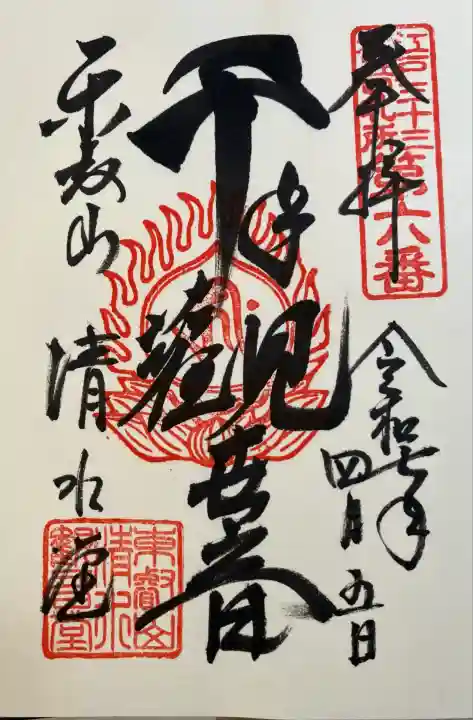 奉拝
江戸三十三
第六番
令和七年
四月五日
千手觀世音
東叡山
清水堂
東叡山
清水
観音堂